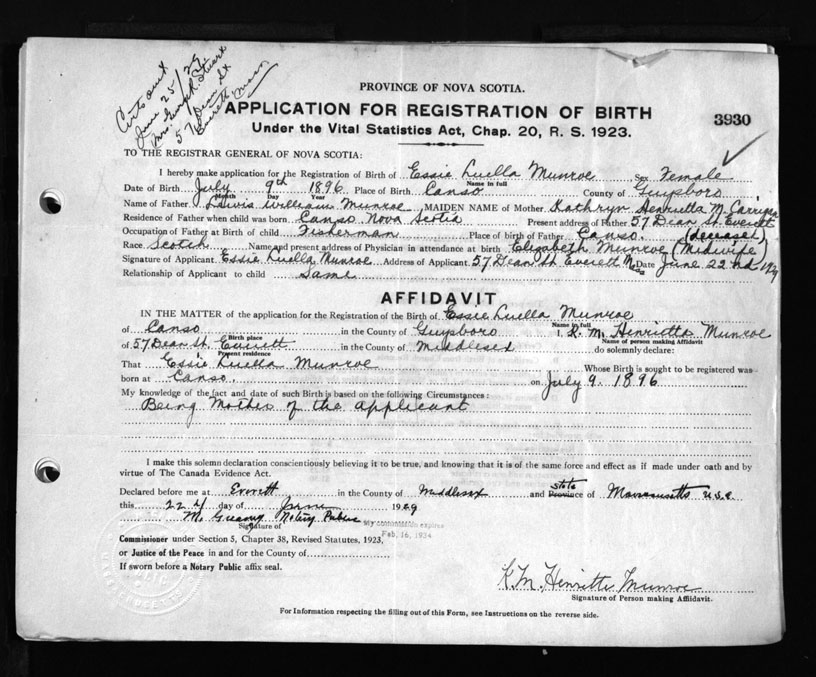 Cert out
June 25/29
Mrs. Geo. R. Stuart
57 Dean St
Everett Mass
PROVINCE OF NOVA SCOTIA.
APPLICATION FOR REGISTRATION OF BIRTH
3930
Under the Vital Statistics Act, Chap. 20, R. S. 1923.
TO THE REGISTRAR GENERAL OF NOVA SCOTIA:
I hereby make application for the Registration of Birth of Essie Luella Munroe Sex Female
Name in full
Date of Birth July 9th 1896 Place of Birth Canso County of Guysboro
Month Day Year
Name of Father William Munroe MAIDEN NAME of Mother Kathryn Henrietta M.
Residence of Father when child was born Canso Nova Scotia Present address of Father 57 Dean St. Everett
Occupation of Father at Birth of child Fisherman Place of birth of Father Canso. (decease)
Race Scotch Name and present address of Physician in attendance at birth Elizabeth Munroe (Midwife)
Signature of Applicant Essie Luella Munroe Address of Applicant 57 Dean St Everett Mass Date June 22nd 1929
Relationship of Applicant to child Same
AFFIDAVIT
IN THE MATTER of the application for the Registration of the Birth of Essie Luella Munroe
Name in full
of Canso in the County of Guysboro I, K. M. Henrietta Munroe
Birth place Name of person making Affidavit
of 57 Dean St. Everett in the County of Middlesex do solemnly declare:
Present residence
That Essie Luella Munroe Whose Birth is sought to be registered was
born at Canso. on July 9. 1896
My knowledge of the fact and date of such Birth is based on the following Circumstances:
Being Mother of the applicant
I make this solemn declaration conscientiously believing it to be true, and knowing that it is of the same force and effect as if made under oath and by
virtue of The Canada Evidence Act.
Declared before me at Everett in the County of Middlesex and State Province of Massachusetts U.S.A
this 22 day of June 1929
M. Notary Public My commission expires
Signature of Feb. 16, 1934
Commissioner under Section 5, Chapter 38, Revised Statutes, 1923,
or Justice of the Peace in and for the County of
If sworn before a Notary Public affix seal.
K. M. Henrietta Munroe
Signature of Person making Affidavit.
For Information respecting the filling out of this Form, see Instructions on the reverse side.